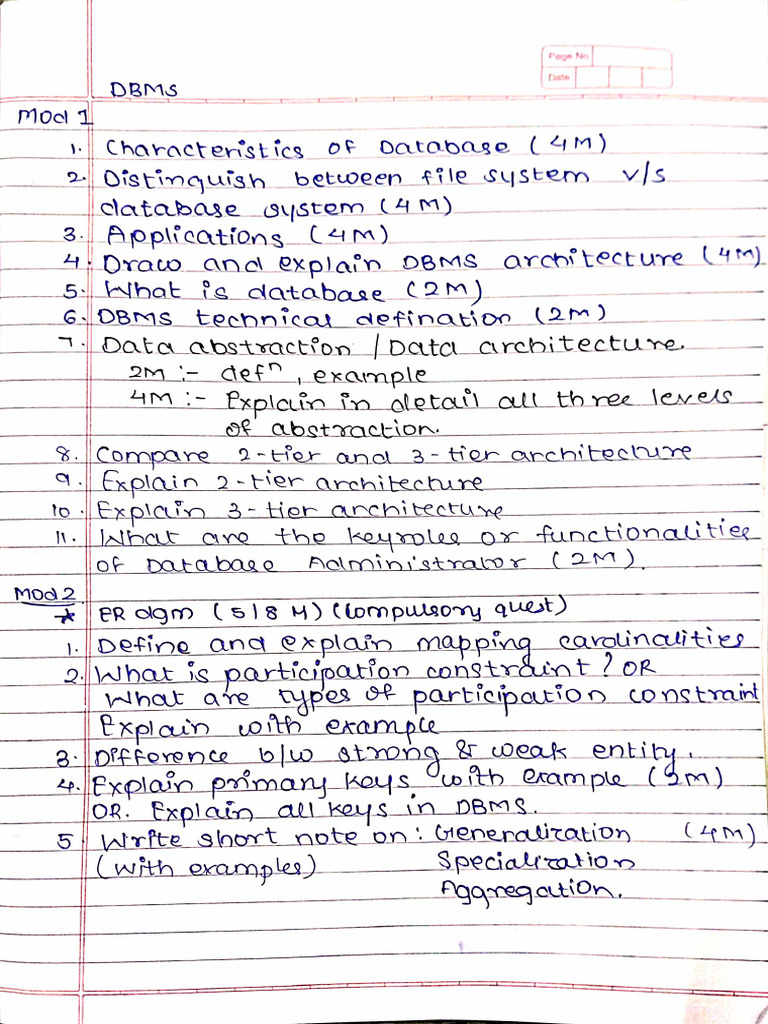 Page No
Date
DBMS
Mod 1
1. Characteristics of Database (4M)
2. Distinguish between file system v/s
database system (4M)
3. Applications (4M)
4. Draw and explain DBMS architecture (4M)
5. What is database (2M)
6. DBMS technical defination (2M)
7. Data abstraction / Data architecture.
2M :- defⁿ, example
4M :- Explain in detail all three levels
of abstraction.
8. Compare 2-tier and 3-tier architecture
9. Explain 2-tier architecture
10. Explain 3-tier architecture
11. What are the keyroles or functionalities
of Database Administrator (2M).
Mod 2
* ER dgm (5/8 M) (Compulsory quest)
1. Define and explain mapping cardinalities
2. What is participation constraint? OR
What are types of participation constraint
Explain with example
3. Difference b/w strong & weak entity.
4. Explain primary keys with example (2M)
OR. Explain all keys in DBMS.
5 Write short note on: Generalization (4M)
(with examples) Specialization
Aggregation.